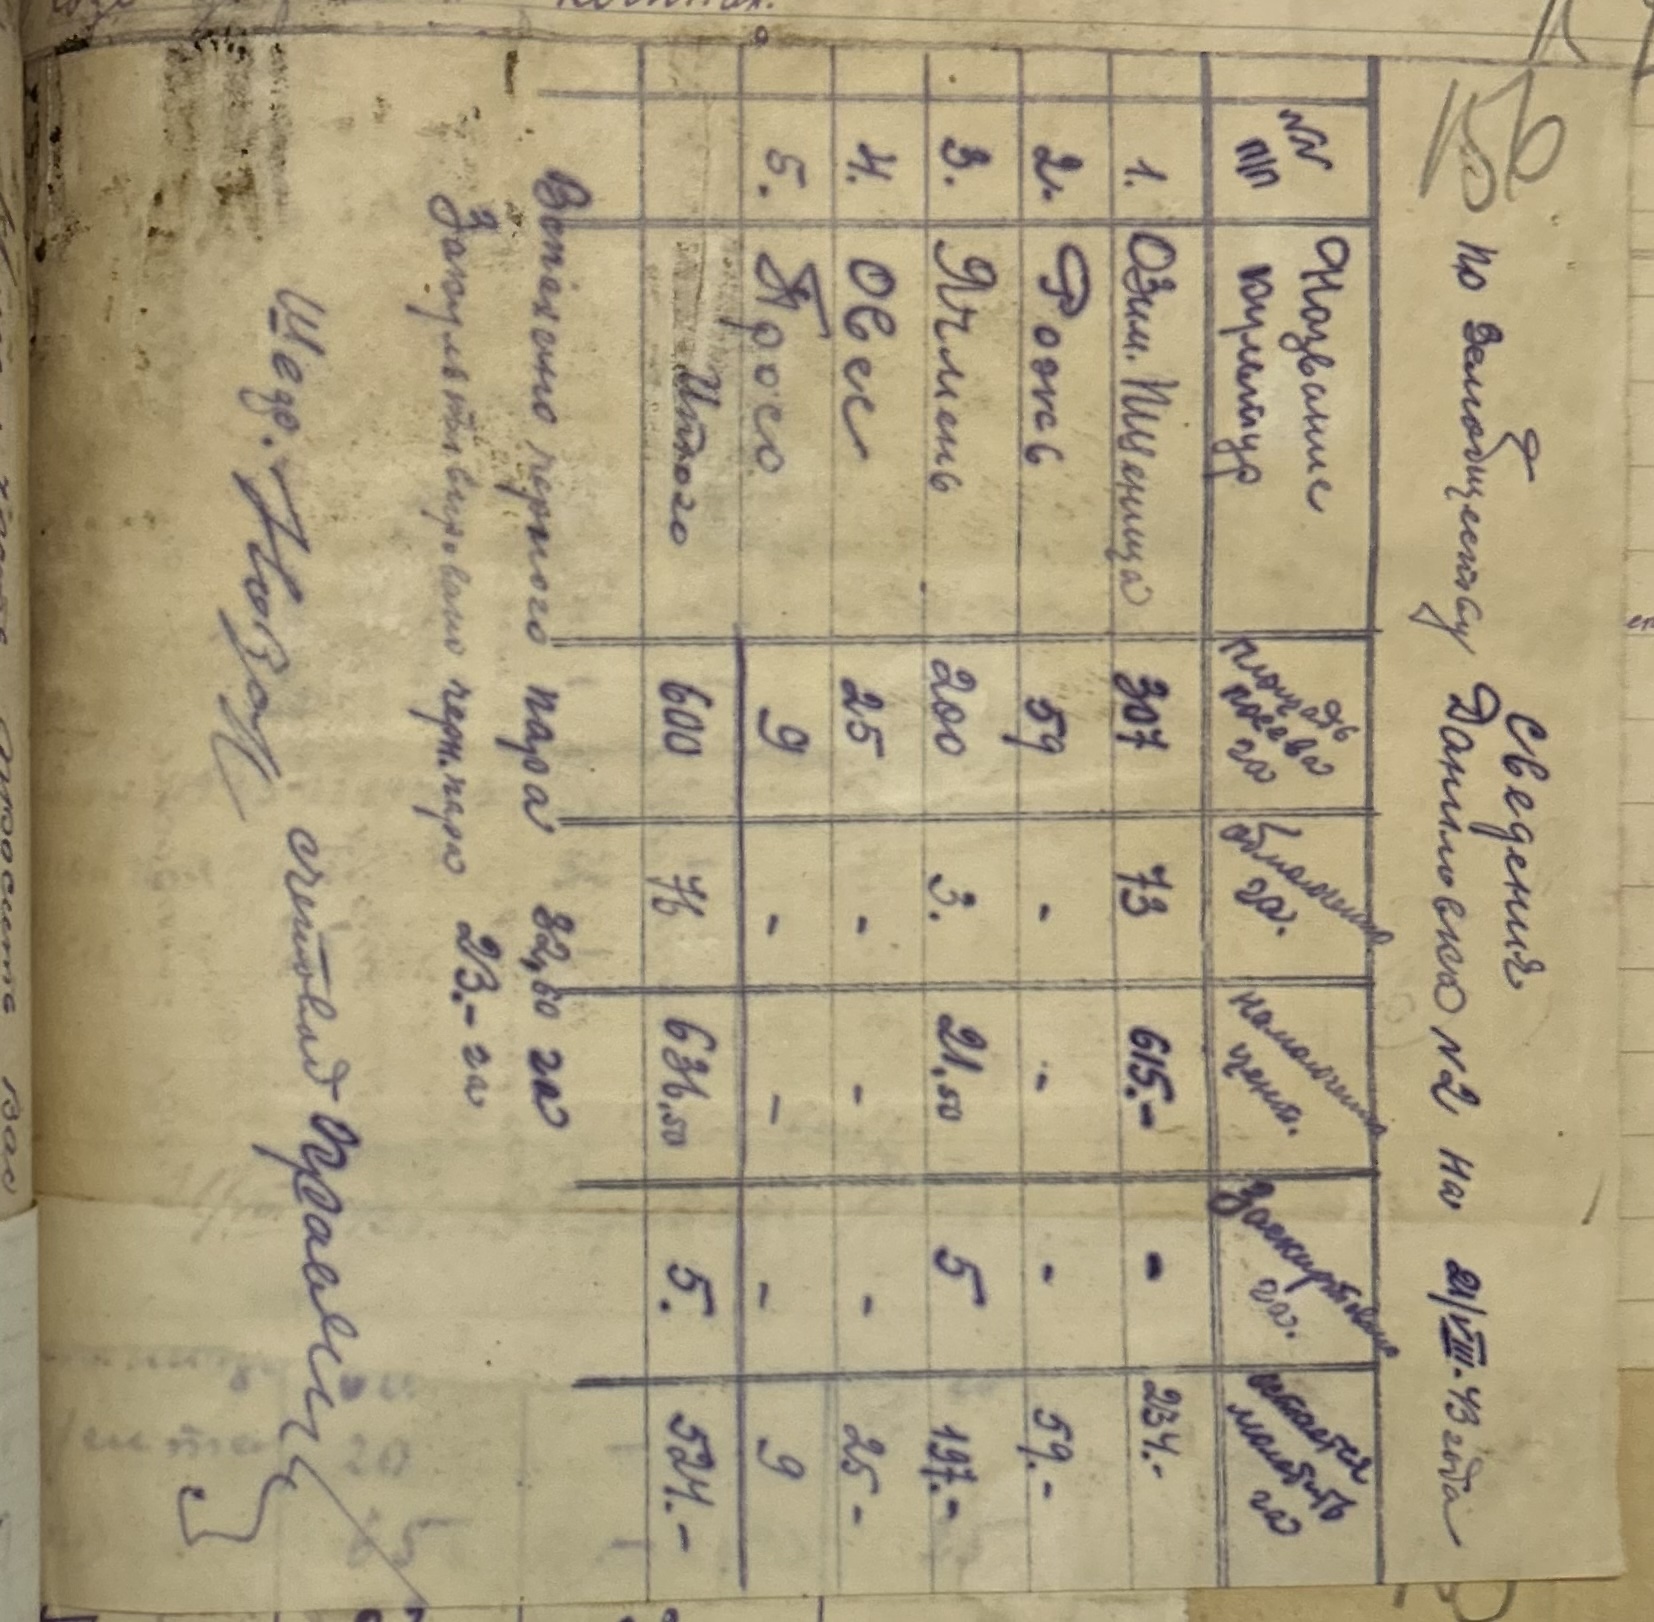 156
Сведения
По земобществу Даниловка N2 на 21/VIII-43 года
NN п/п | Название культур | площадь посева га | Обмолочено га. | намолочено центн. | Заскирдовано га. | остается молотить га
1. Озим. Пшеница 307 73 615.- - 234.-
2. Рожь 59 - - - 59.-
3. Ячмень 200 3. 21,50 5 197.-
4. Овес 25 - - - 25-
5. Просо 9 - - - 9
Итого 600 76 636,50 5. 524.-
Вспахано черного пара 32,60 га
Закультивировано черн. пара 23.- га
счетовод